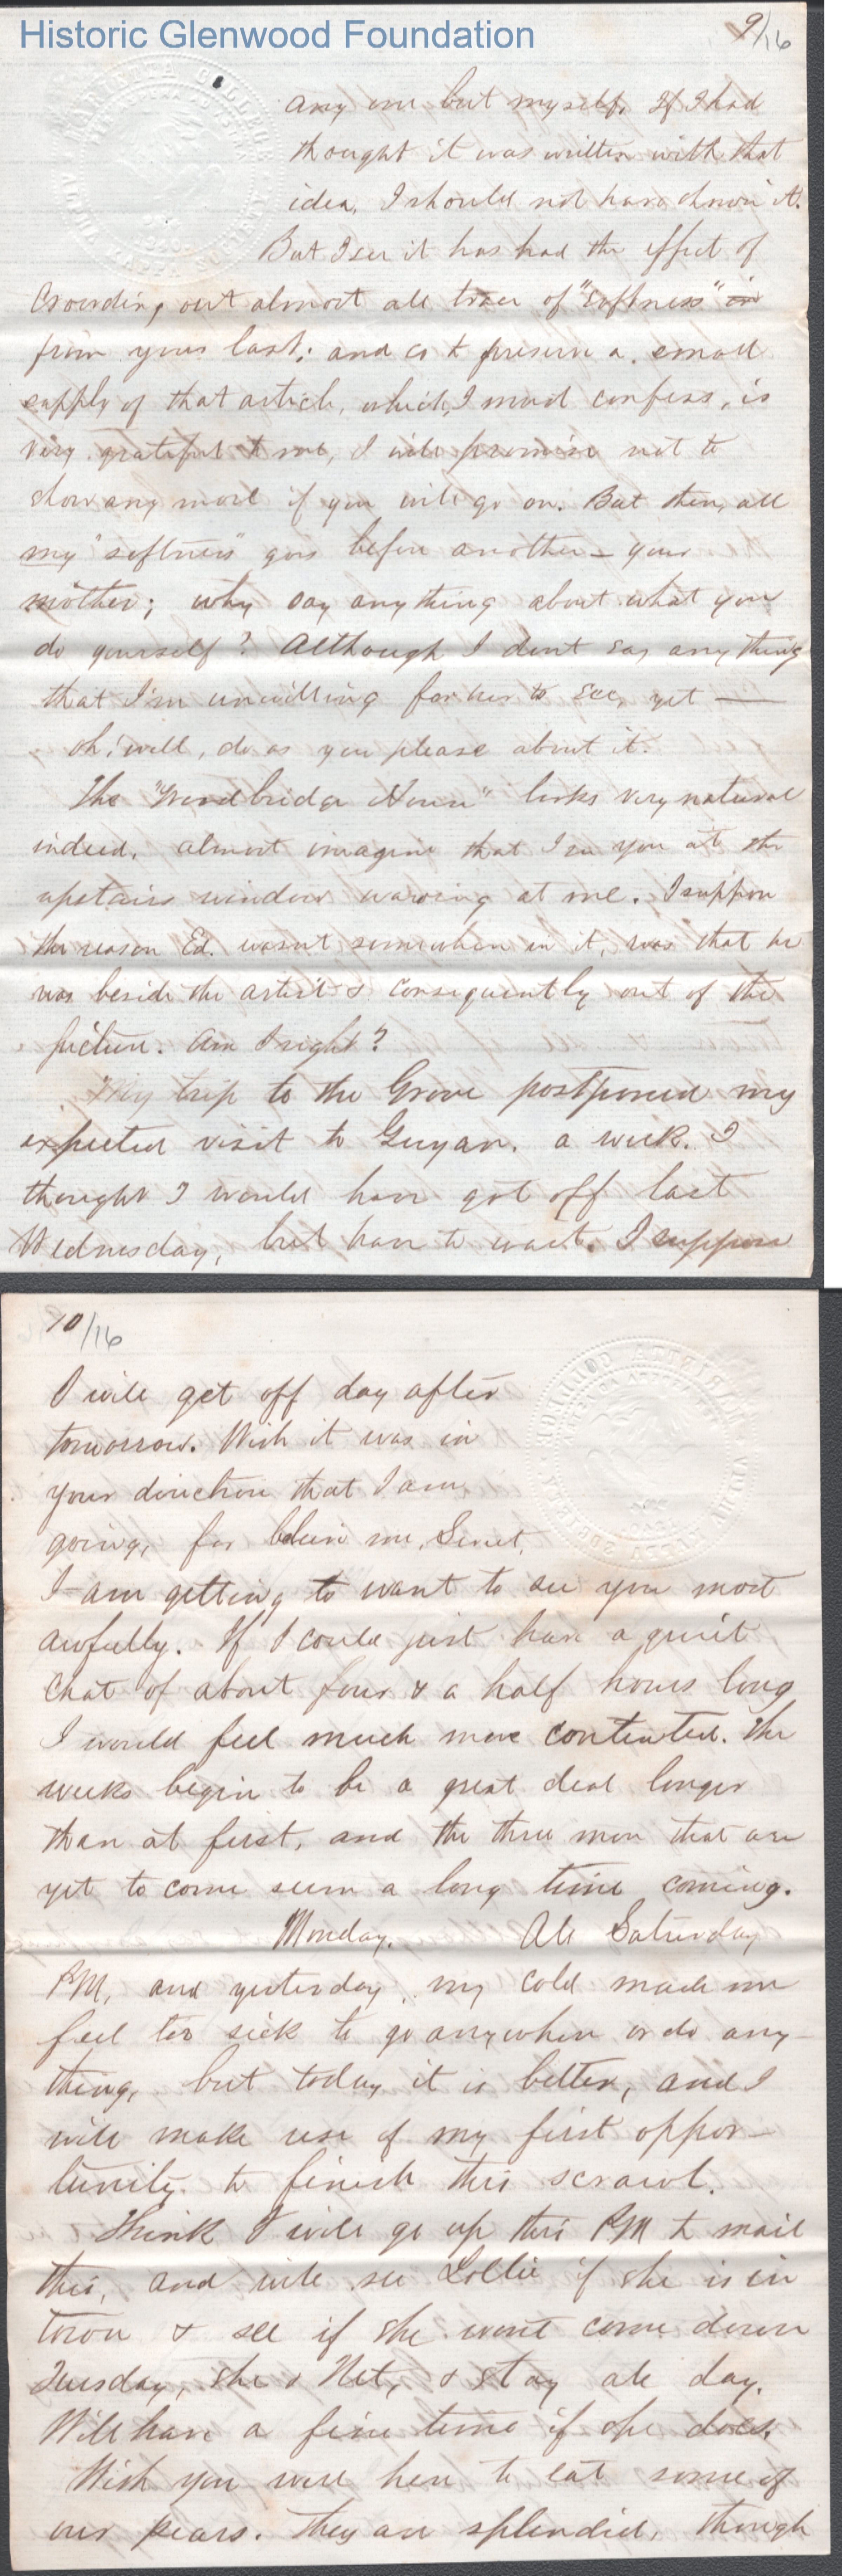 Historic Glenwood Foundation
9/16
any one but myself. If I had
thought it was written with that
idea, I should not have shown it.
But I see it has had the effect of
Crowding out almost all trace of "softness" in
from your last; and so to preserve a small
supply of that article, which, I must confess, is
very grateful to me, I will promise not to
show any more if you will go on. But then, all
my "softness" goes before another - your
mother; why say anything about what you
do yourself? Although I dont say anything
that I'm unwilling for her to see, yet —
oh! well, do as you please about it.
The "Woodbridge House" looks very natural
indeed. almost imagine that I see you at the
upstairs window waving at me. I suppose
the reason Ed. wasn't somewhere in it, was that he
was beside the artist & consequently out of the
picture. Am I right?
My trip to the Grove postponed my
expected visit to Guyan. a week. I
thought I would have got off last
Wednesday, but have to wait. I suppose
10/16
I will get off day after
tomorrow. Wish it was in
your direction that I am
going, for believe me,
I am getting to want to see you most
awfully. If I could just have a quiet
Chat of about four & a half hours long
I would feel much more contented. The
weeks begin to be a great deal longer
than at first, and the three more that are
yet to come seem a long time coming.
Monday. All Saturday
PM, and yesterday, my cold made me
feel too sick to go anywhere or do any-
thing, but today it is better, and I
will make use of my first oppor-
tunity to finish this scrawl.
Think I will go up this PM to mail
this, and will see Lollie if she is in
town & see if she wont come down
Tuesday, she & Net, & stay all day.
Will have a fine time if she does.
Wish you were here to eat some of
our pears. They are splendid, though